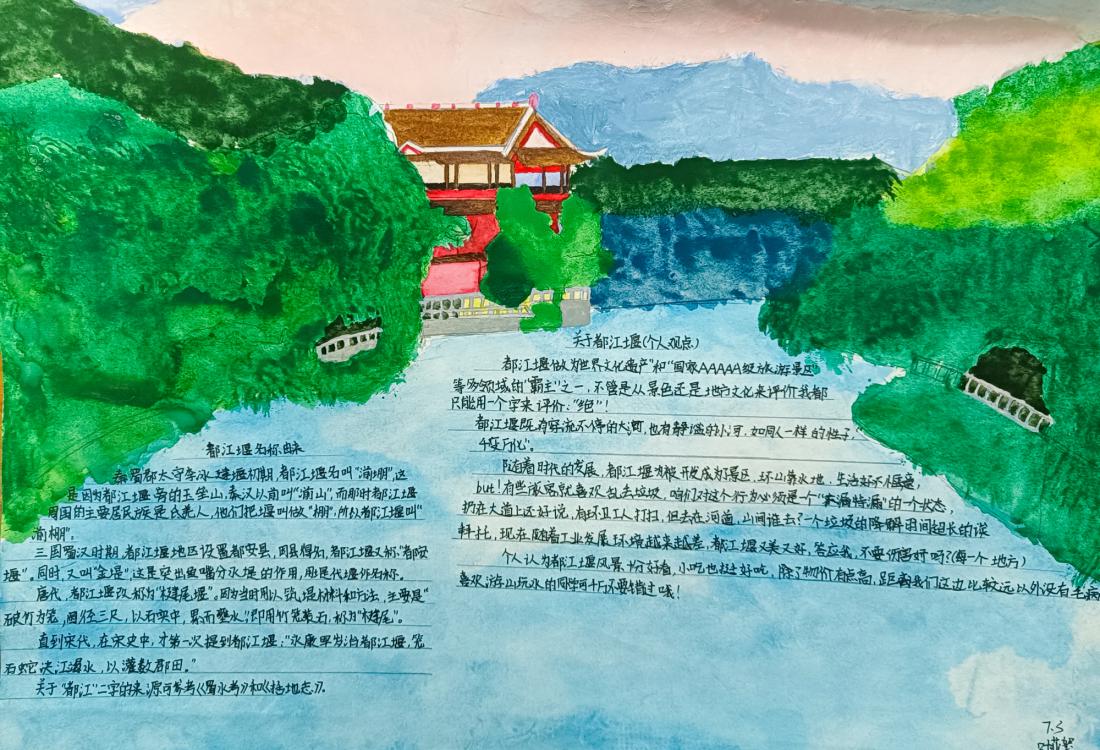 都江堰名称由来
秦蜀郡太守李冰建堰初期,都江堰名叫"湔堋",这
是因为都江堰旁的玉垒山,秦汉以前叫"湔山",而那时都江堰
周围的主要居民族是氐羌人,他们把堰叫做"堋",所以都江堰叫"
湔堋"。
三国蜀汉时期,都江堰地区设置都安县,因县得名,都江堰又称"都安
堰"。同时,又叫"金堤",这是突出鱼嘴分水堤的作用,用堤代堰作名称。
唐代,都江堰改称为"楗尾堰"。因为当时用以筑堤材料和方法,主要是"
破竹为笼,圆径三尺,以石实中,累而壅水",即用竹笼装石,称为"楗尾"。
直到宋代,在宋史中,才第一次提到都江堰:"永康军岁治都江堰,笼
石蛇决江遏水,以灌数郡田。"
关于"都江"二字的来源可参考《蜀水考》和《括地志》。
关于都江堰(个人观点)
都江堰做为"世界文化遗产"和"国家AAAAA级旅游景区"
等多领域的"霸主"之一,不管是从景色还是地方文化来评价我都
只能用一个字来评价:"绝"!
都江堰既有奔流不停的大河,也有静谧的小河,如同人一样的性子,
"变万化"。
随着时代的发展,都江堰为被开发成为景区,环山靠水地,生活好不惬意,
but!有些游客就喜欢乱丢垃圾,咱们对这个行为必须是一个"零容忍"的一个状态,
扔在大道上还好说,有环卫工人打扫,但丢在河道,山间谁去?一个垃圾的降解时间超长的
料托,现在随着工业发展环境越来越差,都江堰又美又好,答应我,不要伤害好吗?(每一个地方)
个人认为都江堰风景十分好看,小吃也挺好吃,除了物价有点高,距离我们这边比较远以外没有毛病
喜欢游山玩水的同学可千万不要错过哦!
7.3